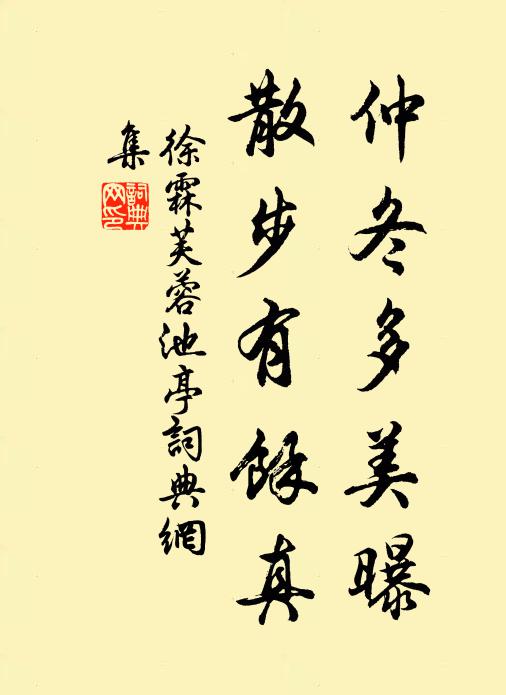 仲冬多美曝
散步有餘真
徐霖芙蓉池亭詞典網
集
詞典網印